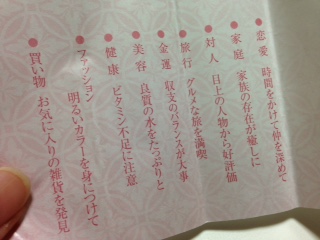 ●恋愛 時間をかけて仲を深めて
●家庭 家族の存在が癒しに
●対人 目上の人物から好評価
●旅行 グルメな旅を満喫
●金運 収支のバランスが大事
●美容 良質の水をたっぷりと
●健康 ビタミン不足に注意
●ファッション 明るいカラーを身につけて
●買い物 お気に入りの雑貨を発見